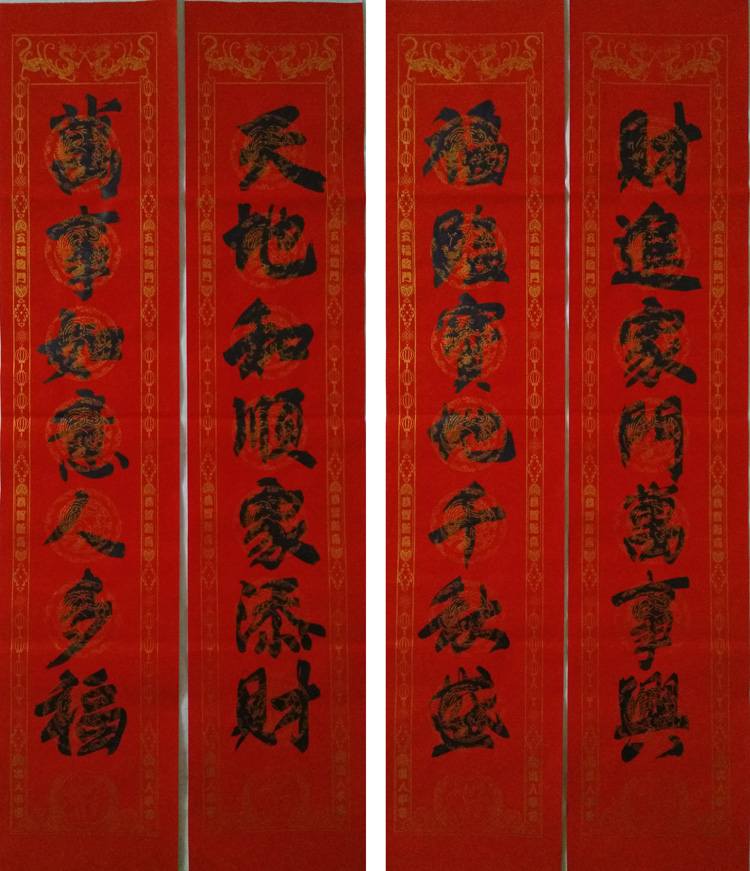 財進家門萬事興
福臨寶地千秋盛
天地和順家添財
萬事如意人多福